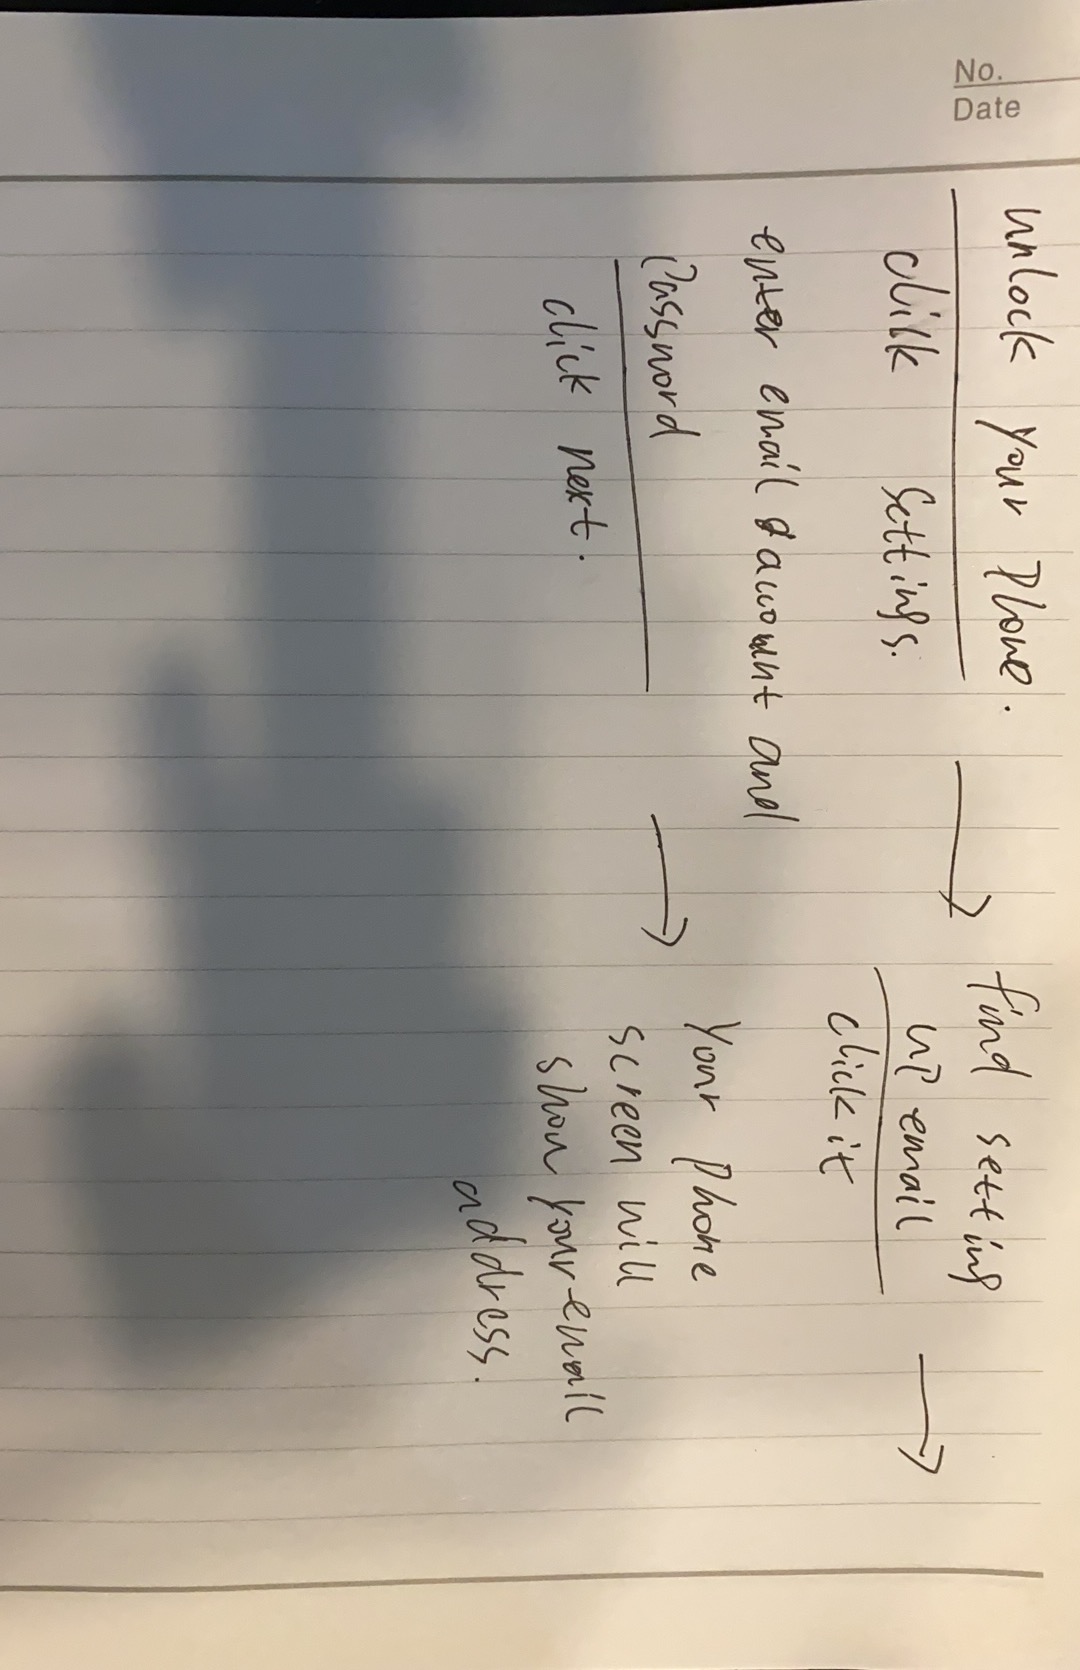 No.
Date
unlock your phone.
clilk settings.
→
find setting
up email
click it
→
enter email & account and
password
click next.
→
your phone
screen will
show your email
address.